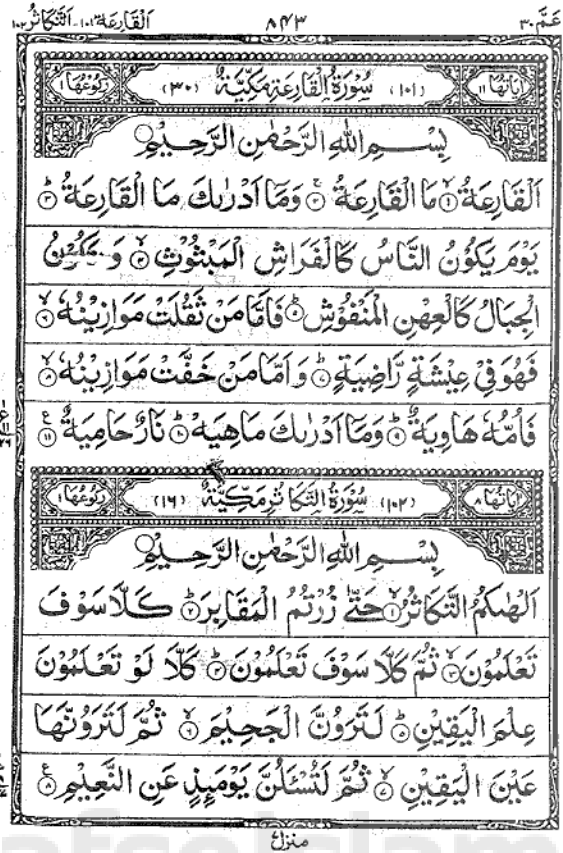 عَمَّ ٣٠ ٨٤٣ اَلْقَارِعَة ١٠١ - اَلتَّكَاثُر ١٠٢
اٰيَاتُهَا ١١ (١٠١) سُوْرَةُ الْقَارِعَةِ مَكِّيَّةٌ (٣٠) رُكُوْعُهَا ١
بِسْمِ اللّٰهِ الرَّحْمٰنِ الرَّحِيْمِ
اَلْقَارِعَةُ ۙ﴿١﴾ مَا الْقَارِعَةُ ۚ﴿٢﴾ وَمَاۤ اَدْرٰىكَ مَا الْقَارِعَةُ ؕ﴿٣﴾
يَوْمَ يَكُوْنُ النَّاسُ كَالْفَرَاشِ الْمَبْثُوْثِ ۙ﴿٤﴾ وَ تَكُوْنُ
الْجِبَالُ كَالْعِهْنِ الْمَنْفُوْشِ ؕ﴿٥﴾ فَاَمَّا مَنْ ثَقُلَتْ مَوَازِيْنُهٗ ۙ﴿٦﴾
فَهُوَ فِيْ عِيْشَةٍ رَّاضِيَةٍ ؕ﴿٧﴾ وَ اَمَّا مَنْ خَفَّتْ مَوَازِيْنُهٗ ۙ﴿٨﴾
فَاُمُّهٗ هَاوِيَةٌ ؕ﴿٩﴾ وَمَاۤ اَدْرٰىكَ مَا هِيَهْ ؕ﴿١٠﴾ نَارٌ حَامِيَةٌ ﴿١١﴾ ع
اٰيَاتُهَا ٨ (١٠٢) سُوْرَةُ التَّكَاثُرِ مَكِّيَّةٌ (١٦) رُكُوْعُهَا ١
بِسْمِ اللّٰهِ الرَّحْمٰنِ الرَّحِيْمِ
اَلْهٰىكُمُ التَّكَاثُرُ ۙ﴿١﴾ حَتّٰى زُرْتُمُ الْمَقَابِرَ ؕ﴿٢﴾ كَلَّا سَوْفَ
تَعْلَمُوْنَ ۙ﴿٣﴾ ثُمَّ كَلَّا سَوْفَ تَعْلَمُوْنَ ؕ﴿٤﴾ كَلَّا لَوْ تَعْلَمُوْنَ
عِلْمَ الْيَقِيْنِ ؕ﴿٥﴾ لَتَرَوُنَّ الْجَحِيْمَ ۙ﴿٦﴾ ثُمَّ لَتَرَوُنَّهَا
عَيْنَ الْيَقِيْنِ ۙ﴿٧﴾ ثُمَّ لَتُسْـَٔلُنَّ يَوْمَئِذٍ عَنِ النَّعِيْمِ ﴿٨﴾ ع
منزل